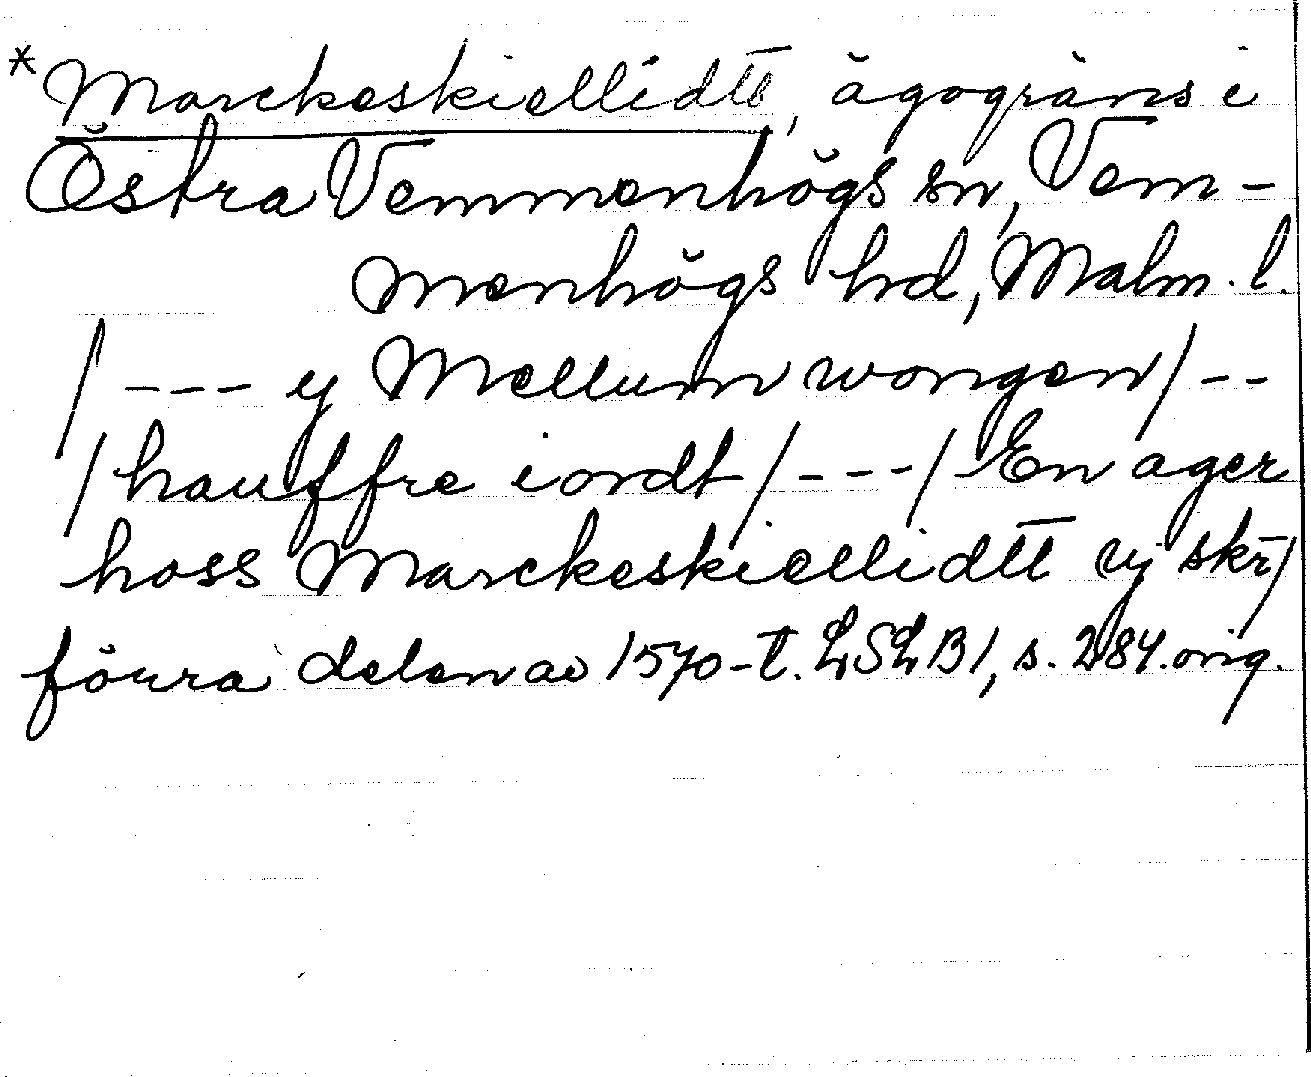 *Marckeskiellidtt, ägogräns i
Östra Vemmenhögs sn, Vem-
menhögs hd, Malm. l.
/--- y Mellum wongen/--
/hauffre iordt/---/ En ager
hoss Marckeskiellidtt vj skr̄/
förra delen av 1570-t. LSLB1, s. 284. orig.